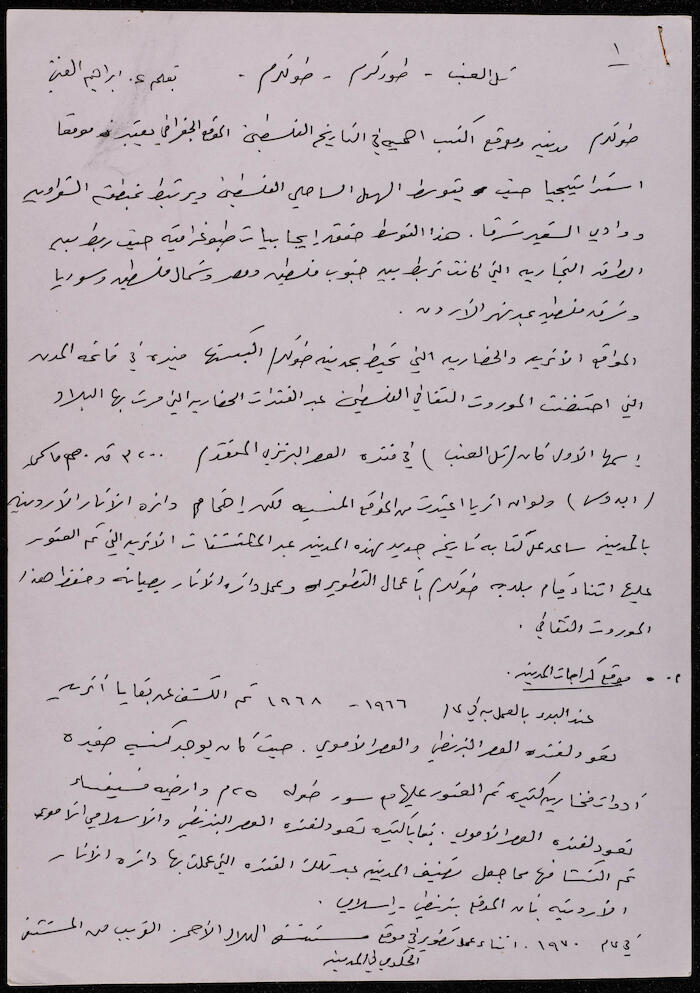 ١
تل العنب - طور كرم - طولكرم - بقلم د. ابراهيم الفني
طولكرم مدينه وموقع اكتسب اهميه في التاريخ الفلسطيني الموقع الجغرافي يعتبر موقعا
استراتيجيا حيث يتوسط السهل الساحلي الفلسطيني ويرتبط بمنطقه الشعراويه
ووادي الشعير شرقا. هذا التوسط حققه إيجابيات طبوغرافية حيث ربط بين
الطرق التجاريه التي كانت تربط بين جنوب فلسطين ومصر وشمال فلسطين وسوريا
وشرق فلسطين عبر نهر الأردن.
المواقع الأثريه والحضاريه التي تحيط بمدينه طولكرم اكسبتها ميزه في قائمه المدن
التي احتضنت الموروث الثقافي الفلسطيني عبر الفترات الحضاريه التي مرت بها البلاد
إسمها الأول كان (تل العنب) في فتره العصر البرنزي المتقدم ٣٢٠٠ ق.م
ولو ان اثريا اعتبرت من المواقع المنسيه لكن إهتمام دائره الآثار الأردنيه
بالمدينه ساعد على كتابه تاريخ جديد لهذه المدينه عبر المكتشفات الاثريه التي تم العثور
عليها اثناء قيام بلديه طولكرم بأعمال التطوير وعمل دائره الآثار بصيانه وحفظ هذا
الموروث الثقافي.
موقع كراجات المدينه.
عند البدء بالعمل به في عام ١٩٦٦ - ١٩٦٨ تم الكشف عن بقايا أثريه
تعود لفتره العصر البيزنطي والعصر الأموي. حيث كان يوجد كنيسه صغيره
أدوات فخاريه كثيره تم العثور عليها سور طوله ٢٥م وارضيه فسيفساء
تعود لفتره العصر الأموي. بقايا كثيره تعود لفتره العصر البيزنطي والاسلامي الأموي
تم اكتشافها مما جعل تصنيف المدينه عبر تلك الفتره التي عملت بها دائره الآثار
الأردنيه بأن الموقع بيزنطي - إسلامي.
في عام ١٩٧٠. اثناء عمل تطوير في موقع مستشفى الهلال الأحمر. القريب من المستشفى
الحكومي في المدينه